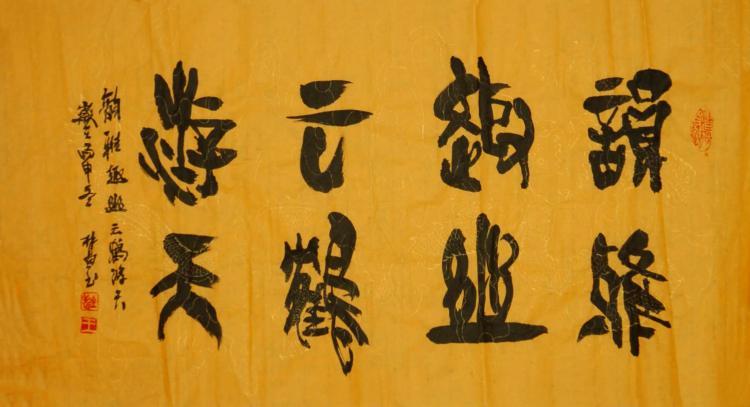 韻雅
趣幽
云鶴
游天
韻雅趣幽云鶴游天
歲在丙申冬